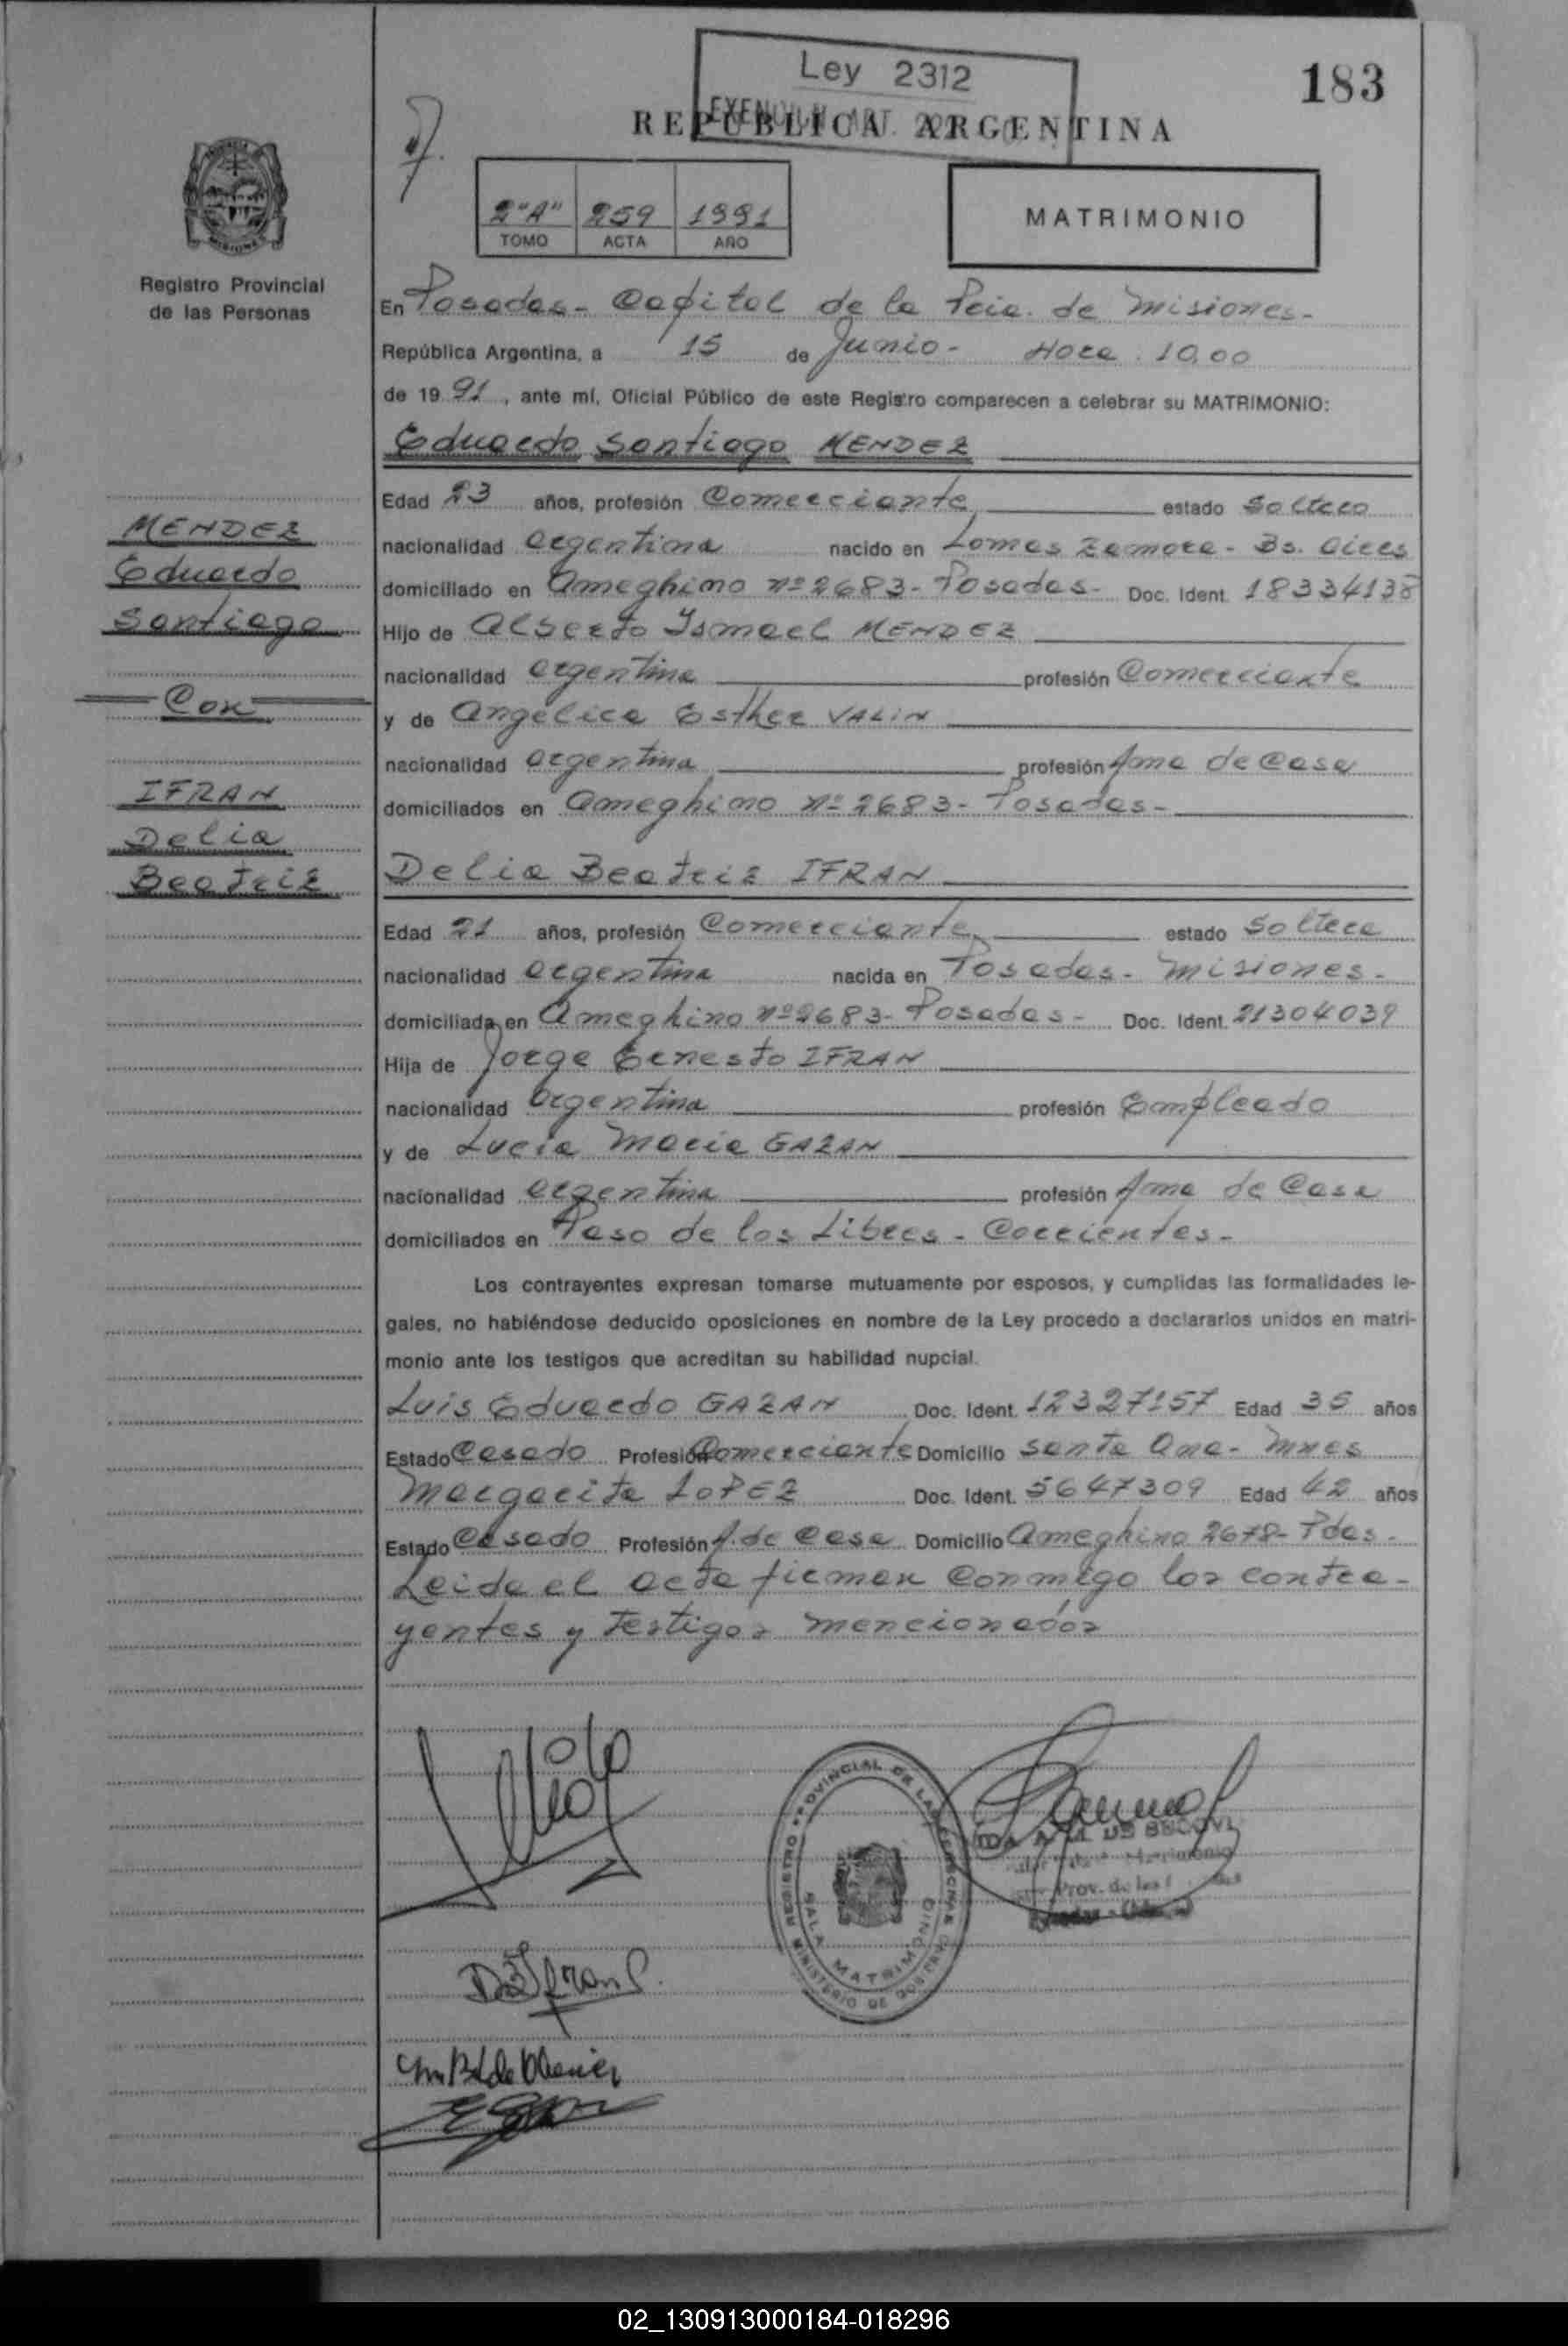 Ley 2312
EXENCION ART.
183
REPUBLICA ARGENTINA
2"A" 259 1991
TOMO ACTA AÑO
MATRIMONIO
Registro Provincial
de las Personas
En Posadas- Capital de la Pcia. de Misiones-
República Argentina, a 15 de Junio- Hora: 10,00
de 1991, ante mí, Oficial Público de este Registro comparecen a celebrar su MATRIMONIO:
Eduardo Santiago MENDEZ
MENDEZ
Eduardo
Santiago
Con
IFRAN
Delia
Beatriz
Edad 23 años, profesión Comerciante estado Soltero
nacionalidad argentina nacido en Lomas Zamora- Bs. Aires
domiciliado en Ameghino nº 2683- Posadas- Doc. Ident. 18334138
Hijo de Alberto Ismael MENDEZ
nacionalidad argentina profesión Comerciante
y de Angélica Esther VALIN
nacionalidad argentina profesión Ama de Casa
domiciliados en Ameghino Nº 2683- Posadas-
Delia Beatriz IFRAN
Edad 21 años, profesión Comerciante estado Soltera
nacionalidad argentina nacida en Posadas- Misiones-
domiciliada en Ameghino nº 2683- Posadas- Doc. Ident. 21304039
Hija de Jorge Ernesto IFRAN
nacionalidad argentina profesión Empleado
y de Lucia Maria GAZAN
nacionalidad argentina profesión Ama de Casa
domiciliados en Paso de los Libres- Corrientes-
Los contrayentes expresan tomarse mutuamente por esposos, y cumplidas las formalidades le-
gales, no habiéndose deducido oposiciones en nombre de la Ley procedo a declararlos unidos en matri-
monio ante los testigos que acreditan su habilidad nupcial.
Luis Eduardo GAZAN Doc. Ident. 12327157 Edad 35 años
Estado Casado Profesión Comerciante Domicilio Santa Ana- Mnes
Margarita LOPEZ Doc. Ident. 5647309 Edad 42 años
Estado Casado Profesión A. de Casa Domicilio Ameghino 2678- Pdas-
Leida el acta firman conmigo los contra-
yentes y testigos mencionados
REGISTRO PROVINCIAL DE LAS PERSONAS
SALA MATRIMONIO
MINISTERIO DE GOBIERNO
Matrimonio
Prov. de las
02_130913000184-018296